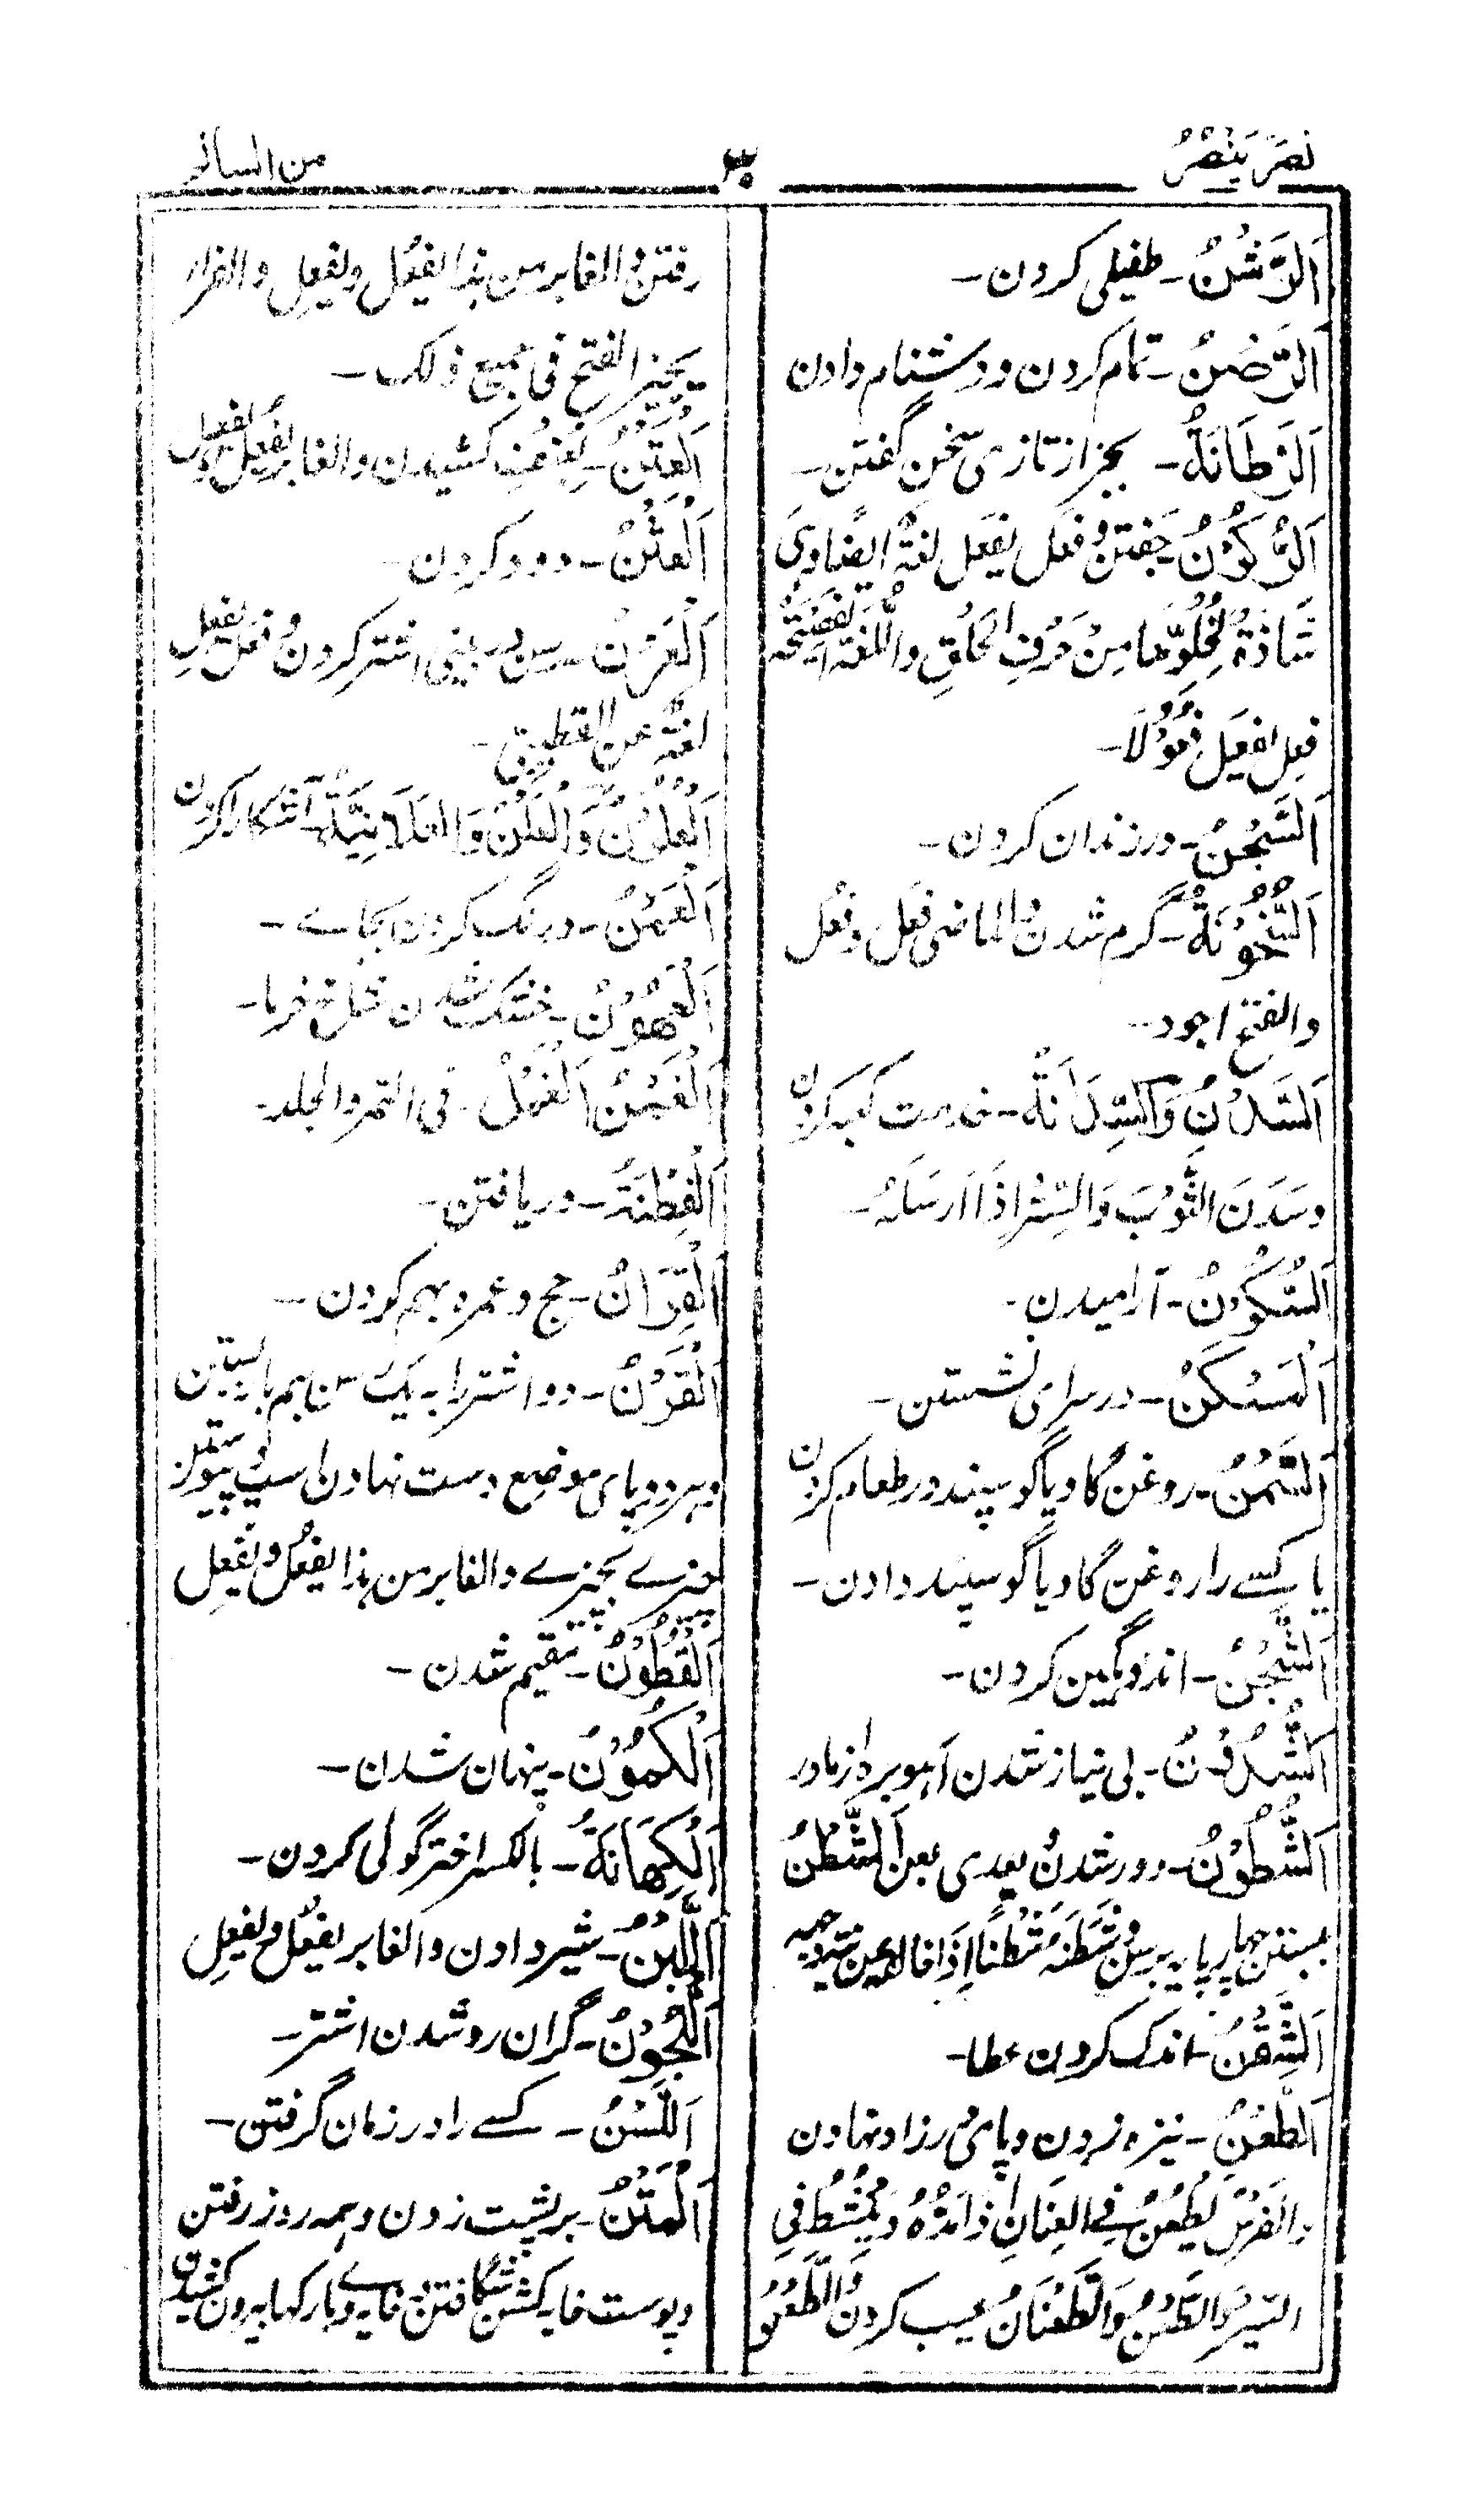 نَصَرَ یَنْصُرُ
۳۰
من السالم
اَلرَّشْنُ - طفیلی کردن -
اَلرَّصْنُ - تمام کردن و دشنام دادن
اَلرَّطَانَةُ - بجز از تازی سخن گفتن -
اَلرُّکُوْنُ - چفتن و فعَل یفعَل لغةٌ ایضًا وہی
شَاذَةٌ لِخُلُوِّهَا مِنْ حَرْفِ الْحَلْقِ واللغة الفصیحة
فعِل یفعَل فُعُوْلًا -
اَلسَّجْنُ - در زندان کردن -
اَلسُّخُوْنَةُ - گرم شدن والماضی فعَل وفعُل
والفتح اجود -
اَلسَّدْنُ وَالسِّدَانَةُ - خدمت کعبہ کردن
وسَدَنَ الثَّوْبَ وَالسِّتْرَ اِذَا اَرسَلَهُ -
اَلسُّکُوْنُ - آرامیدن -
اَلْمَسْکَنُ - در سرای نشستن -
اَلسَّمْنُ - روغن گاو یا گوسپند در طعام کردن
یا کسے را روغن گاو یا گوسپند دادن -
اَلشَّجْنُ - اندوہگین کردن -
اَلشُّدُوْنُ - بی نیاز شدن آہو برہ از مادر
اَلشُّطُوْنُ - دور شدن یعدی بعن اَلشَّطْنُ
بستن چهار پایہ برسن و شَطَنَهُ شَطْنًا اِذَا خالفہ عن نیتہ وجہہ
اَلشَّقْنُ - اندک کردن عطا -
اَلطَّعْنُ - نیزہ زدن و پای در زاد نهادن
والفَرَسُ یَطْعُنُ فِی العِنَانِ اِذَا مَدَّهُ وَ فِی
السَیرِ وَالطَّعْنُ وَالطَّعَنَانُ عیب کردن وَالطَّعْنُ
رفتن والغابر من ہذا یفعُل ویفعَل والفراء
یجیز الفتح فی جمیع ذلک -
اَلْعَتْنُ - بعنف کشیدن والغابر یفعُل ویفعِل
اَلْعَثْنُ - دود کردن -
اَلْعَرْنُ - رسن در بینی اشتر کردن وفعَل یفعِل
لغةٌ عن القطیبی -
اَلْعُلُوْنُ وَالْعَلَنُ وَالعَلَانِیَةُ - آشکارا کردن
اَلْعَمْنُ - درنگ کردن بجاے -
اَلْعُهُوْنُ - خشک شدن شاخ خرما -
اَلْغَمْنُ اَلْغَمْلُ - فی التمر والجلد -
اَلْفِطْنَةُ - دریافتن -
اَلْقِرَانُ - حج و عمرہ بہم کردن -
اَلْقَرْنُ - دو اشتر را بیک رسن بہم باز بستن
و ہر دو پای موضع دست نہادن اسپ و پیوستن
چیزے بچیزے والغابر من ہذا یفعُل ویفعِل
اَلْقُطُوْنُ - مقیم شدن -
اَلْکُمُوْنُ - پنہان شدن -
اَلْکِهَانَةُ - بالکسر اختر گوئی کردن -
اَللَّبْنُ - شیر دادن والغابر یفعُل ویفعِل
اَللُّجُوْنُ - گران رو شدن اشتر -
اَللَّسْنُ - کسے را در زبان گرفتن -
اَلْمَتْنُ - بر پشت زدن و ہمہ روز رفتن
و پوست خایہ کشن شگافتن و خایہ وبا رگہا بیرون کشیدن